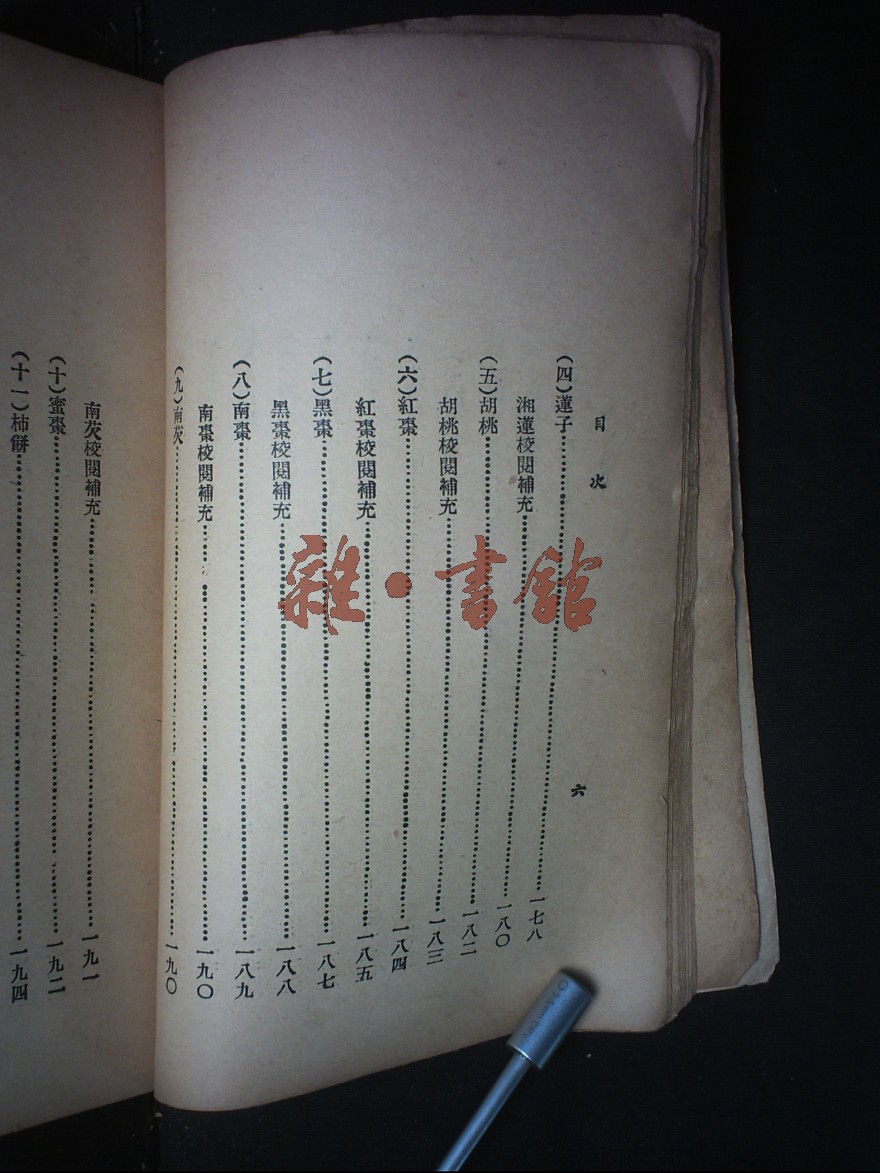 目次
六
(四)蓮子……一七八
湘蓮校閱補充……一八〇
(五)胡桃……一八二
胡桃校閱補充……一八三
(六)紅棗……一八四
紅棗校閱補充……一八五
(七)黑棗……一八七
黑棗校閱補充……一八八
(八)南棗……一八九
南棗校閱補充……一九〇
(九)南芡……一九〇
南芡校閱補充……一九一
(十)蜜棗……一九二
(十一)柿餅……一九四
雜·書館